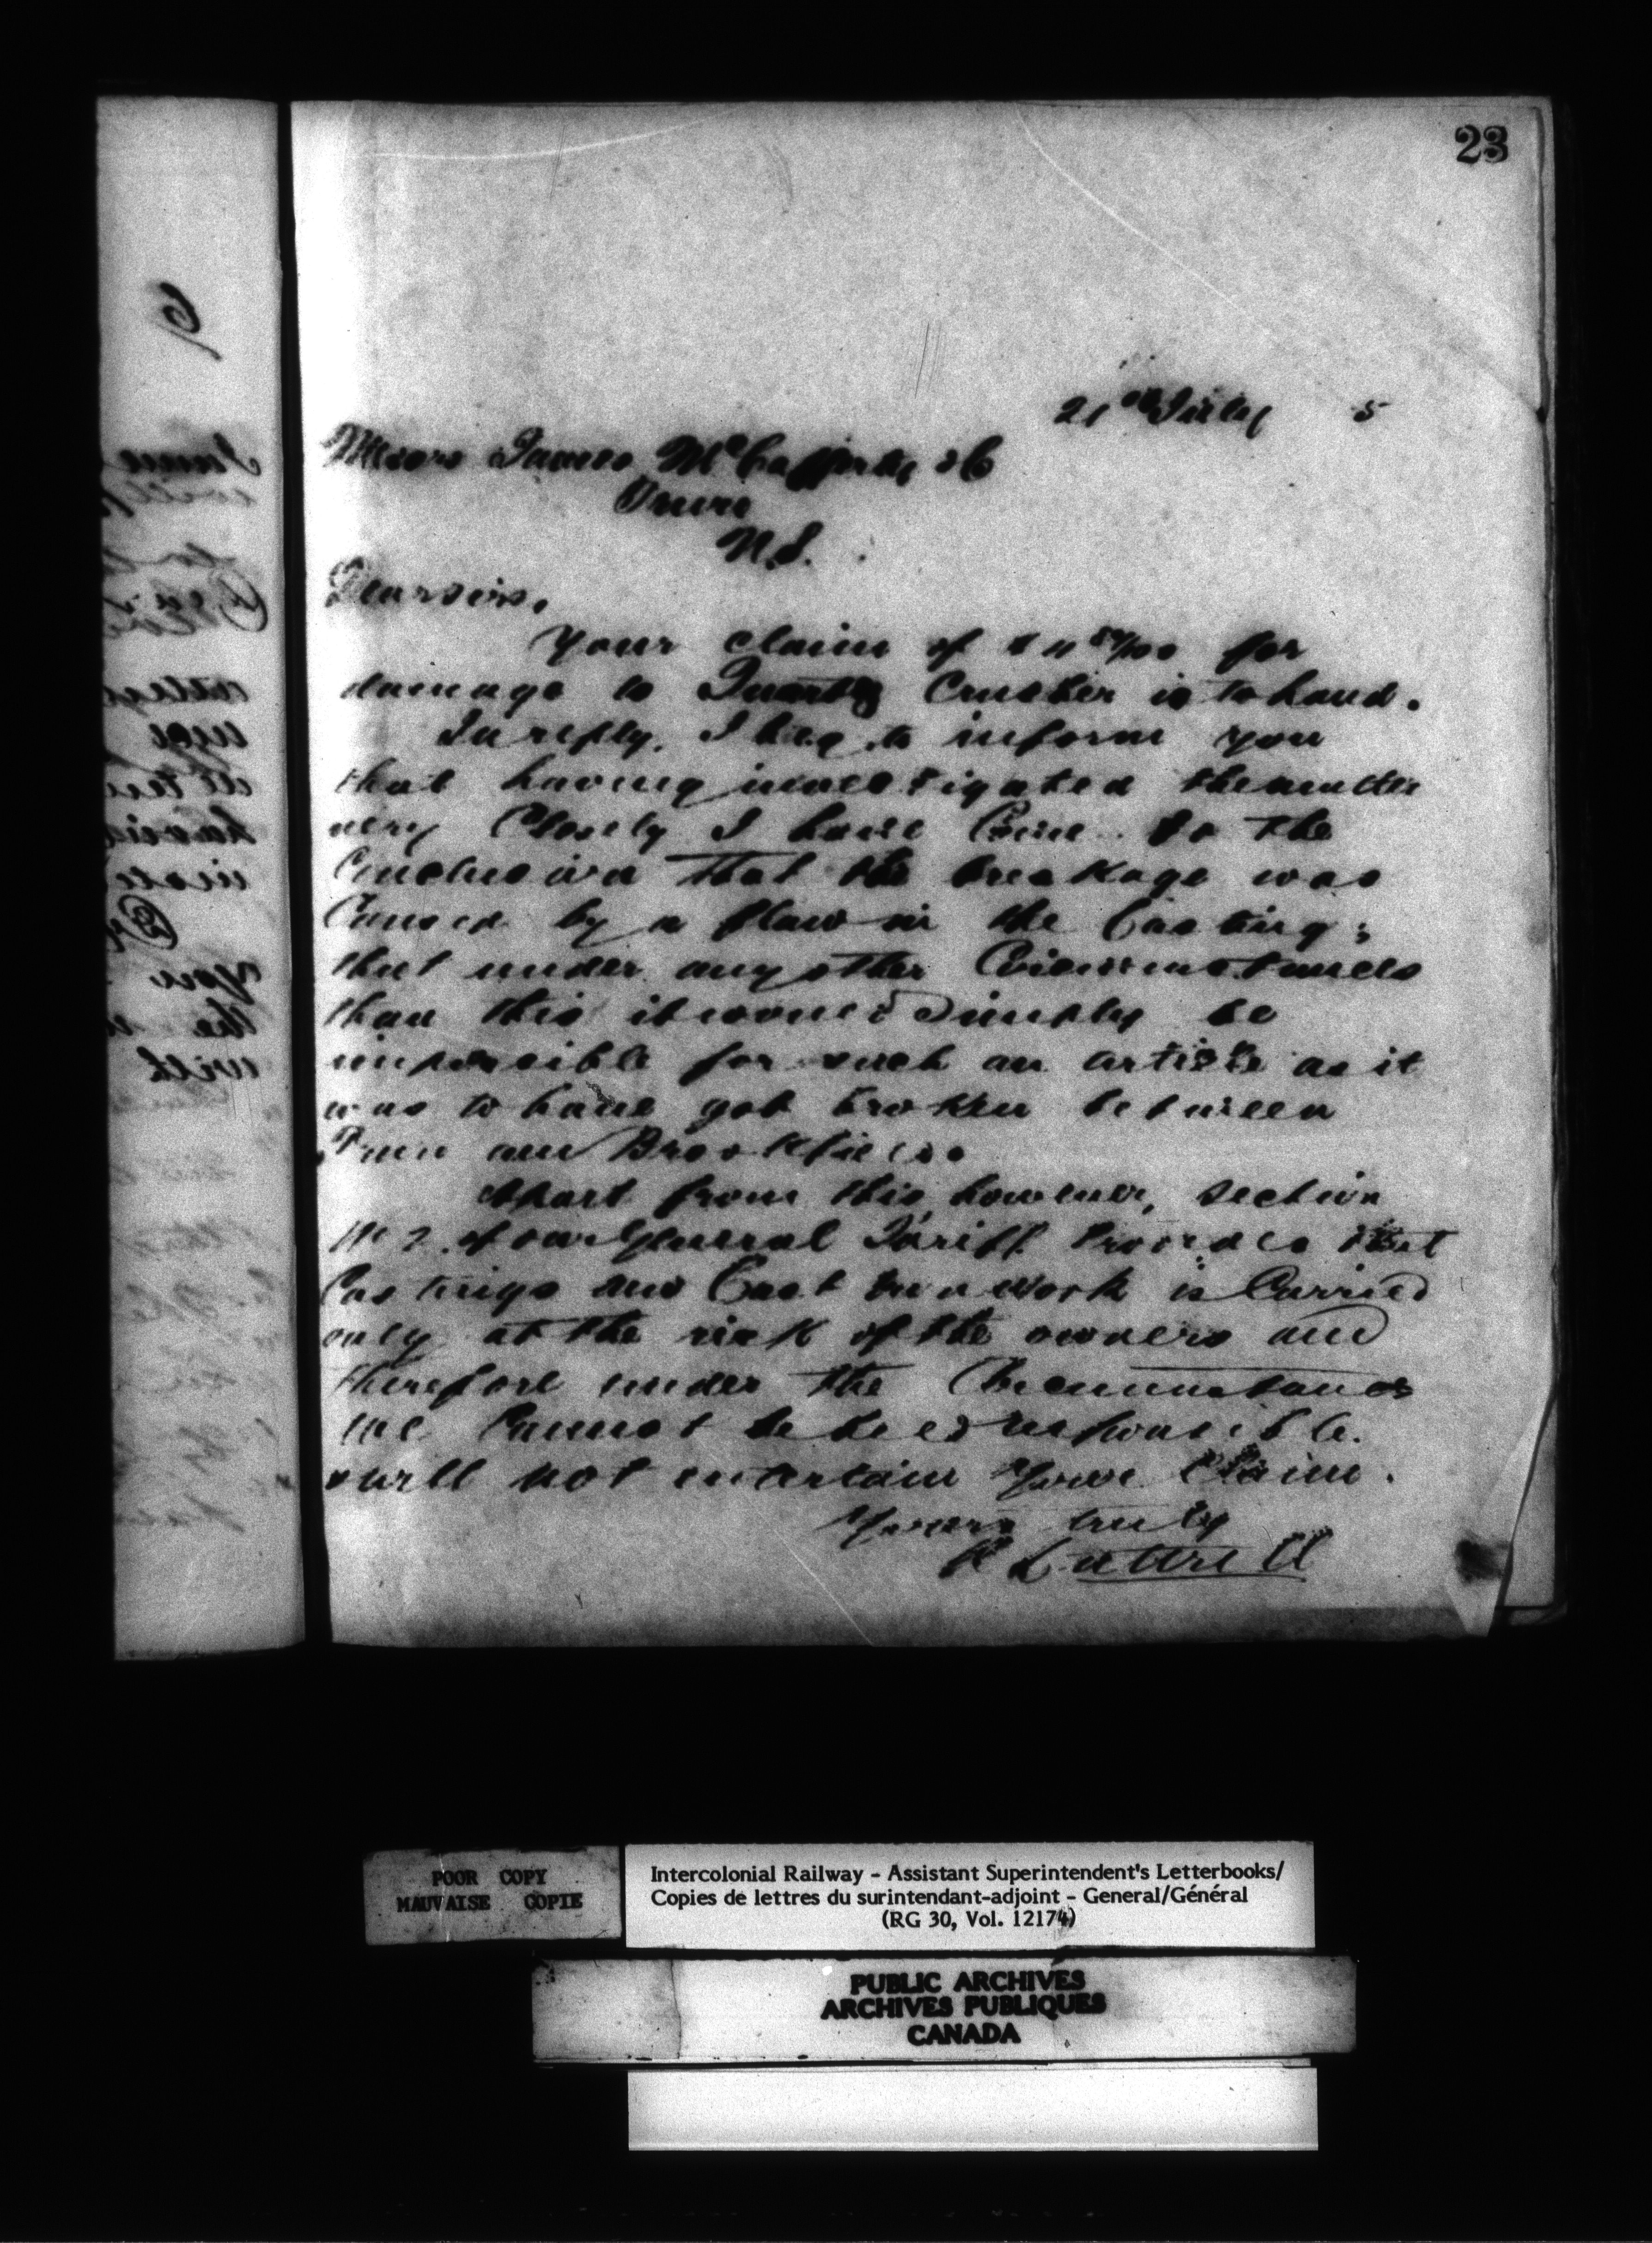 23
21st July 5
Messrs James McCafferty & C
Truro
N.S.
Dear sirs,
Your claim of $ for
damage to Quartz Crusher is to hand.
In reply, I beg to inform you
that having investigated the matter
very Closely I have Come to the
Conclusion that the breakage was
Caused by a flaw in the Casting;
that under any other Circumstances
than this it would simply be
impossible for such an article as it
was to have got broken between
Truro and Brookfield.
Apart from this, however, section
of our General Tariff Provides that
Castings and Cast Iron work is Carried
only at the risk of the owners and
therefore under the Circumstances
we Cannot be held responsible.
& will not entertain your Claim.
Yours truly
Luttrell
POOR COPY
MAUVAISE COPIE
Intercolonial Railway - Assistant Superintendent's Letterbooks/
Copies de lettres du surintendant-adjoint - General/Général
(RG 30, Vol. 12174)
PUBLIC ARCHIVES
ARCHIVES PUBLIQUES
CANADA